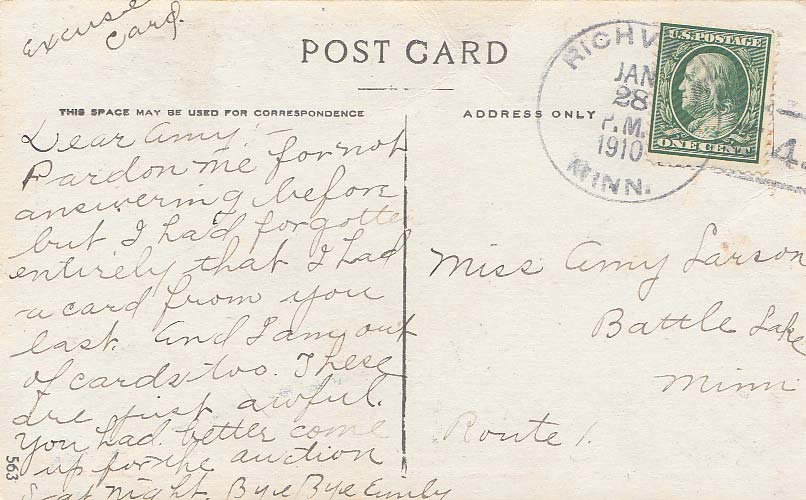 Excuse
Card.
POST CARD
THIS SPACE MAY BE USED FOR CORRESPONDENCE
ADDRESS ONLY
RICHV
JAN
28
P.M.
1910
MINN.
U.S. POSTAGE
ONE CENT
4
Dear Amy! –
Pardon me for not
answering before
but I had forgotten
entirely that I had
a card from you
last. And I am out
of cards too. These
are just awful.
You had better come
up for the auction
Sat night. Bye Bye Emily
Miss Amy Larson
Battle Lake
Minn
Route 1.
563